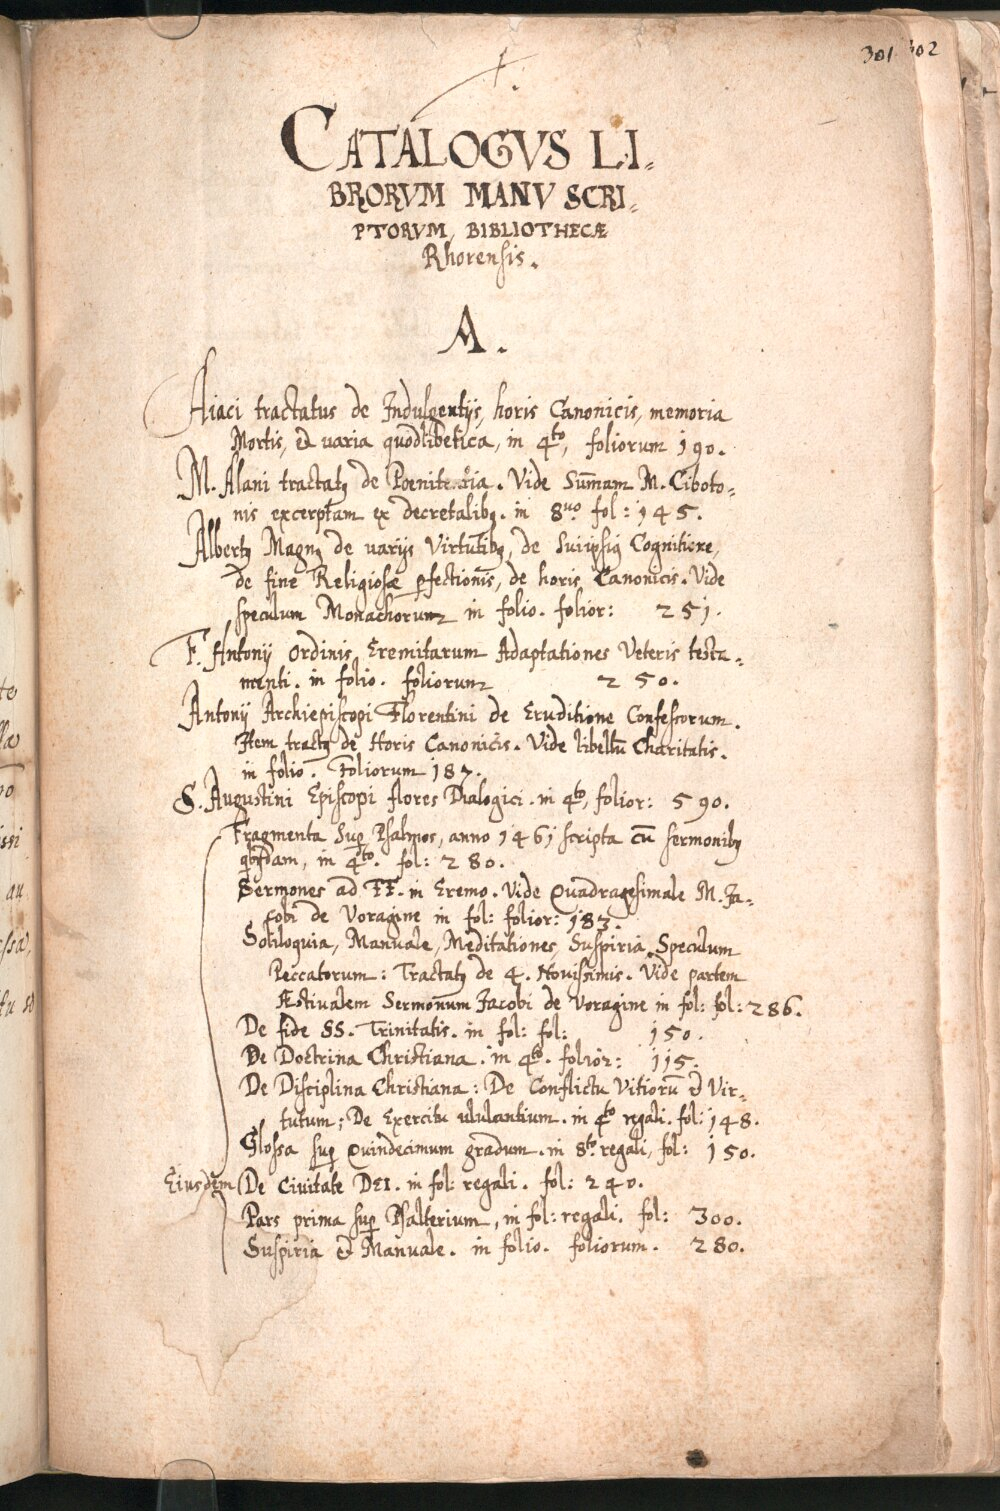 301 302
CATALOGVS LI-
BRORVM MANV SCRI-
PTORVM, BIBLIOTHECÆ
Rhorensis.
A.
Aiaci tractatus de Indulgentijs, horis Canonicis, memoria
Mortis, et varia quodlibetica, in 4to, foliorum 190.
M. Alani tractatꝰ de Poenitentia. Vide Sum̄am M. Ciboto-
nis excerptam ex decretalibꝰ. in 8uo. fol: 145.
Albertꝰ Magnꝰ de varijs Virtutibꝰ, de Suiipsiꝰ Cognitione,
de fine Religiosæ ꝑfectionis, de horis Canonicis. Vide
speculum Monachorum in folio. folior: 251.
F. Antonij Ordinis Eremitarum Adaptationes Veteris testa-
menti. in folio. foliorum 250.
Antonij Archiepiscopi Florentini de Eruditione Confessorum.
Item tractꝰ de Horis Canonicis. Vide libellū Charitatis.
in folio. Foliorum 187.
S. Augustini Episcopi flores Dialogici. in 4to, folior: 590.
Fragmenta Suꝑ Psalmos, anno 1461 scripta cū sermonibꝰ
qbꝰdam, in 4to. fol: 280.
Sermones ad FF. in Eremo. Vide Quadragesimale M. Ja-
cobi de Voragine in fol: folior: 183.
Soliloquia, Manuale, Meditationes, Suspiria, Speculum
Peccatorum: Tractatꝰ de 4. Novissimis. Vide partem
Æstivalem Sermonum Jacobi de Voragine in fol: fol: 286.
De fide SS. Trinitatis. in fol: fol: 150.
De Doctrina Christiana. in 4to. folior: 115.
De Disciplina Christiana: De Conflictu Vitiorū et Vir-
tutum; De Exercitu ululantium. in 4to regali. fol: 148.
Glossa suꝑ Quindecimum gradum. in 8to. regali, fol: 150.
Eiusdem De Civitate DEI. in fol: regali. fol: 240.
Pars prima suꝑ Psalterium, in fol: regali. fol: 300.
Suspiria et Manuale. in folio. foliorum. 280.